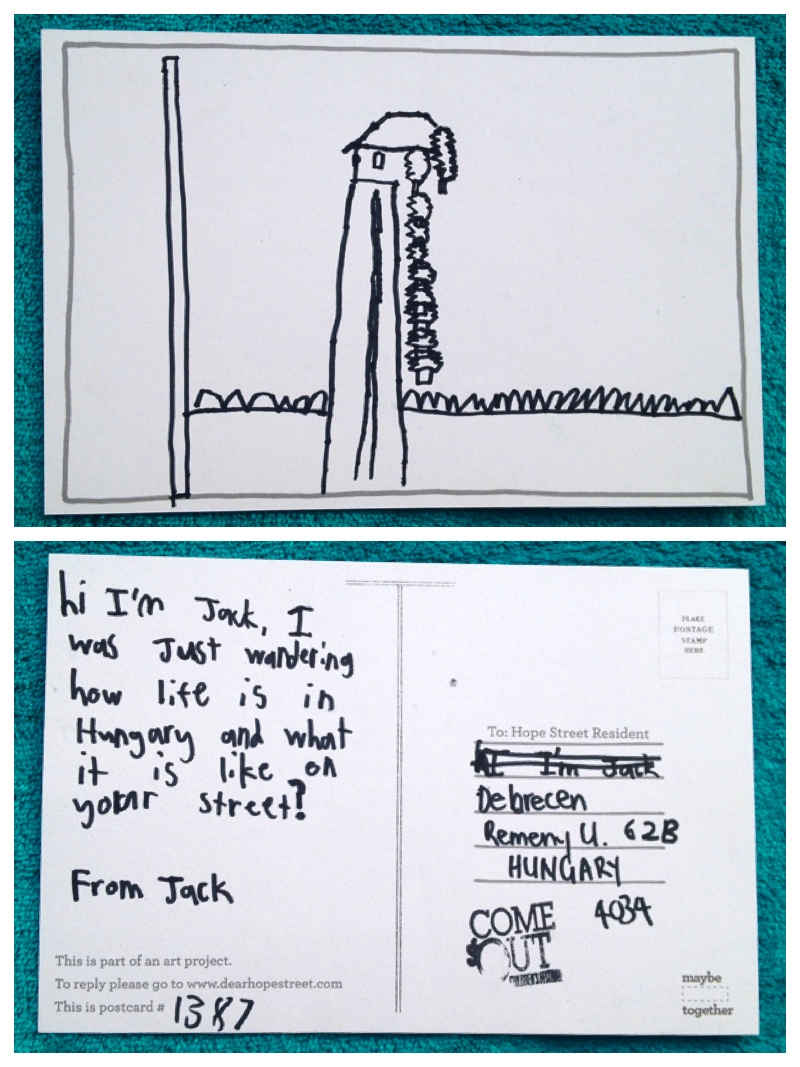 hi I'm Jack, I
was Just wandering
how life is in
Hungary and what
it is like on
your street?
From Jack
This is part of an art project.
To reply please go to www.dearhopestreet.com
This is postcard # 1387
PLACE
POSTAGE
STAMP
HERE
To: Hope Street Resident
hI I'm Jack
Debrecen
Remeny U. 62B
HUNGARY
4034
COME
OUT
maybe
together